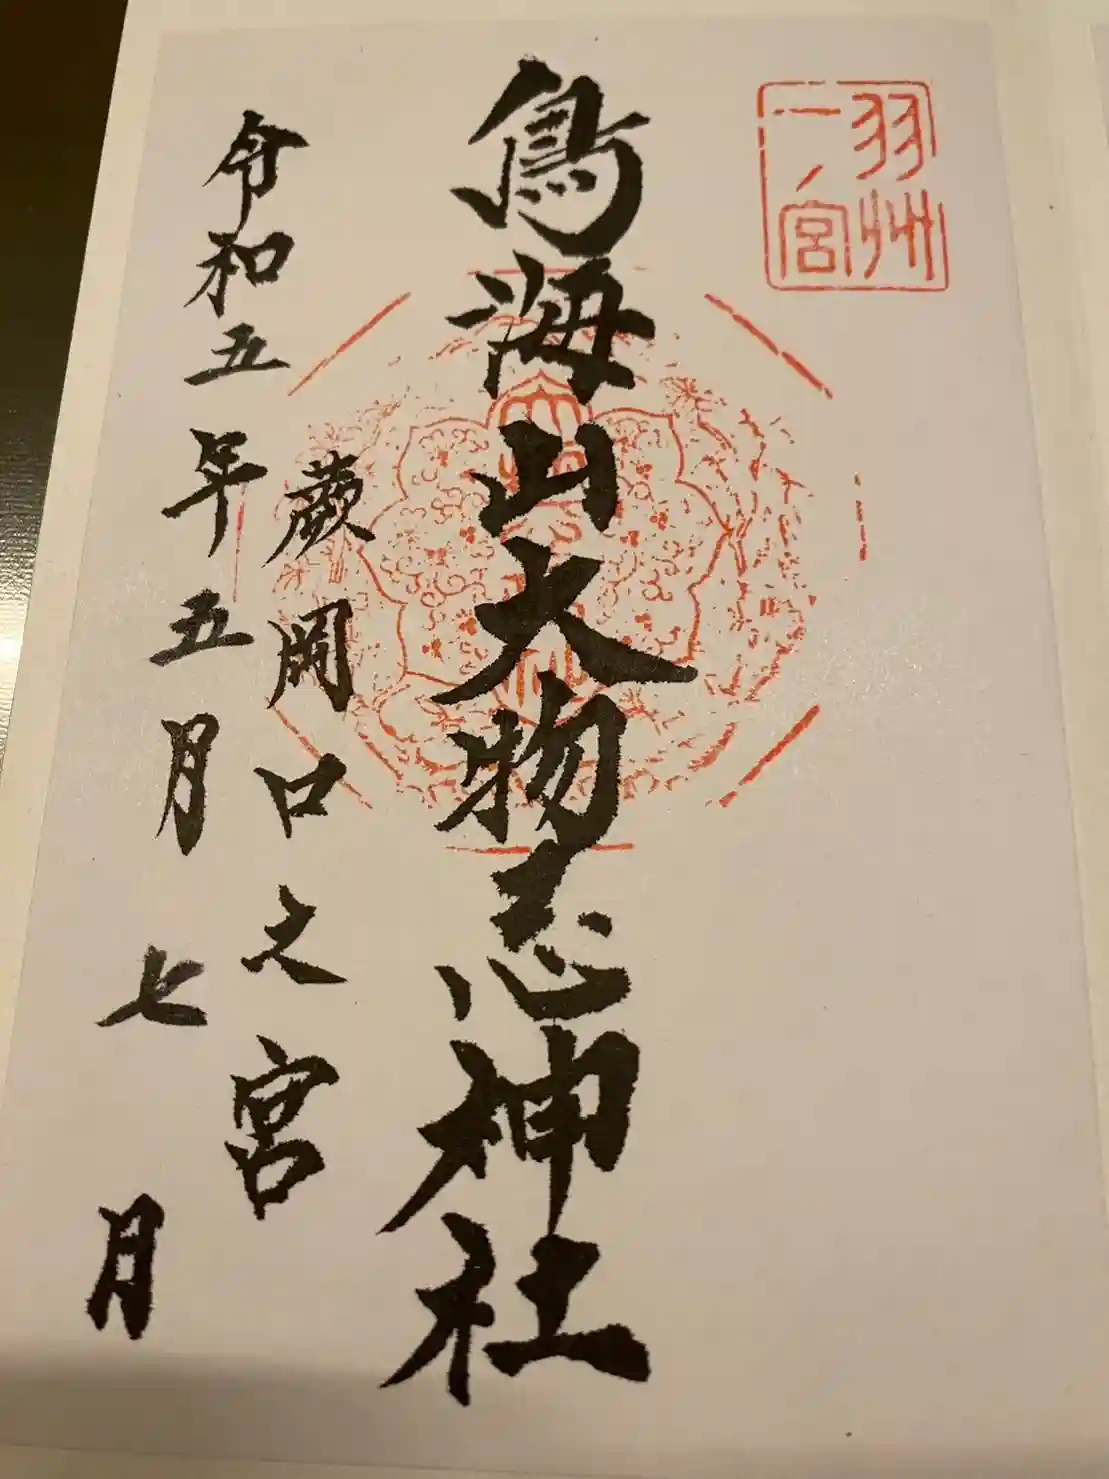 羽州
一ノ宮
鳥海山大物忌神社
蕨岡口之宮
令和五年五月七月